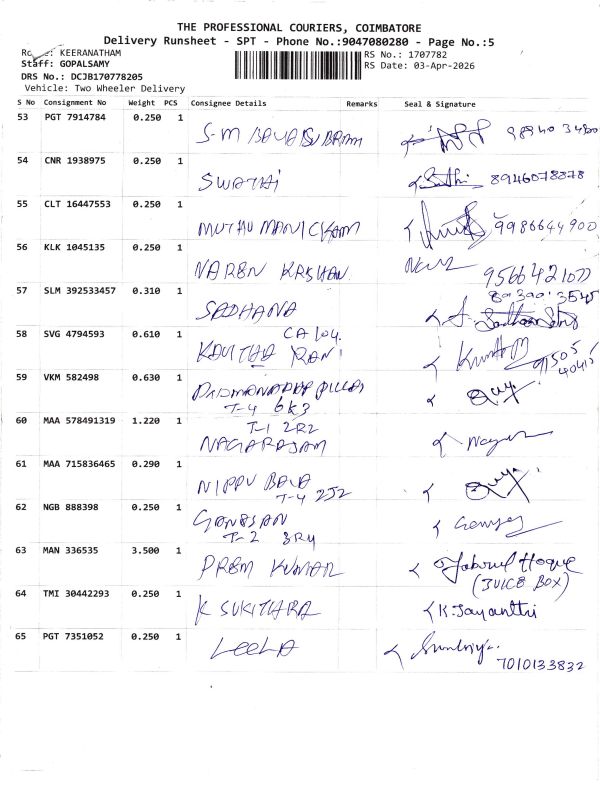 THE PROFESSIONAL COURIERS, COIMBATORE
Delivery Runsheet - SPT - Phone No.:9047080280 - Page No.:5
Route: KEERANATHAM RS No.: 1707782
Staff: GOPALSAMY RS Date: 03-Apr-2026
DRS No.: DCJB170778205
Vehicle: Two Wheeler Delivery
S No Consignment No Weight PCS Consignee Details Remarks Seal & Signature
53 PGT 7914784 0.250 1 S-M
54 CNR 1938975 0.250 1 SWATHI 8946078878
55 CLT 16447553 0.250 1 MUTHU MANICKAM 9986644900
56 KLK 1045135 0.250 1 NAREN KRSHAN
57 SLM 392533457 0.310 1 SADHANA
58 SVG 4794593 0.610 1 KAVITHA RANI
59 VKM 582498 0.630 1
T-4 6K3
60 MAA 578491319 1.220 1 T-1 2R2
NAGARAJAN
61 MAA 715836465 0.290 1 NIPPU BALA
T-4 2J2
62 NGB 888398 0.250 1 GANESAN
T-2 3R4
63 MAN 336535 3.500 1 PREM KUMAR
(JUICE BOX)
64 TMI 30442293 0.250 1 K SUKITHARA K. Jayanthi
65 PGT 7351052 0.250 1 LEELA
7010133832